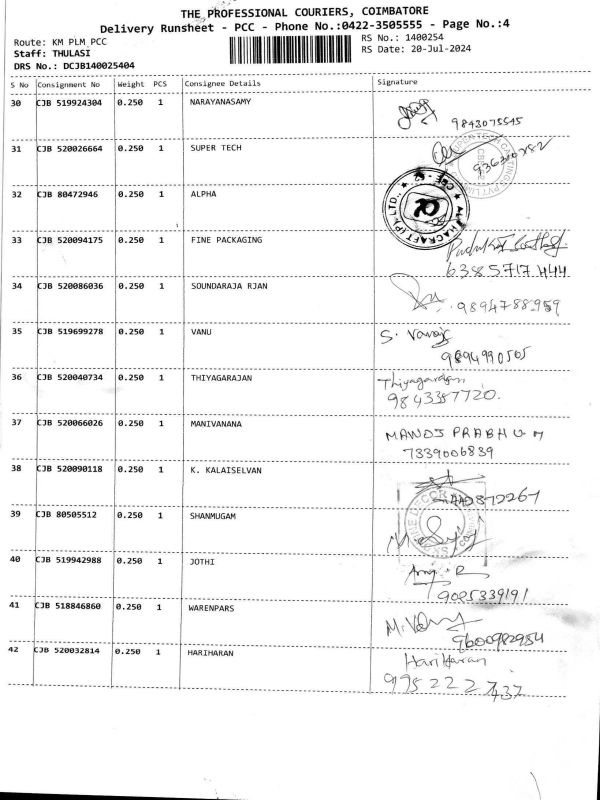 THE PROFESSIONAL COURIERS, COIMBATORE
Delivery Runsheet - PCC - Phone No.:0422-3505555 - Page No.:4
Route: KM PLM PCC RS No.: 1400254
Staff: THULASI RS Date: 20-Jul-2024
DRS No.: DCJB140025404
S No Consignment No Weight PCS Consignee Details Signature
30 CJB 519924304 0.250 1 NARAYANASAMY
9843075545
31 CJB 520026664 0.250 1 SUPER TECH
32 CJB 80472946 0.250 1 ALPHA
33 CJB 520094175 0.250 1 FINE PACKAGING
6385717444
34 CJB 520086036 0.250 1 SOUNDARAJA RJAN
9894788959
35 CJB 519699278 0.250 1 VANU S.
9894990505
36 CJB 520040734 0.250 1 THIYAGARAJAN Thiyagarajan
9843357720.
37 CJB 520066026 0.250 1 MANIVANANA MANOJ PRABHU M
7339006839
38 CJB 520090118 0.250 1 K. KALAISELVAN
39 CJB 80505512 0.250 1 SHANMUGAM
40 CJB 519942988 0.250 1 JOTHI
9025339191
41 CJB 518846860 0.250 1 WARENPARS
9600982954
42 CJB 520032814 0.250 1 HARIHARAN HariHaran
9952227437